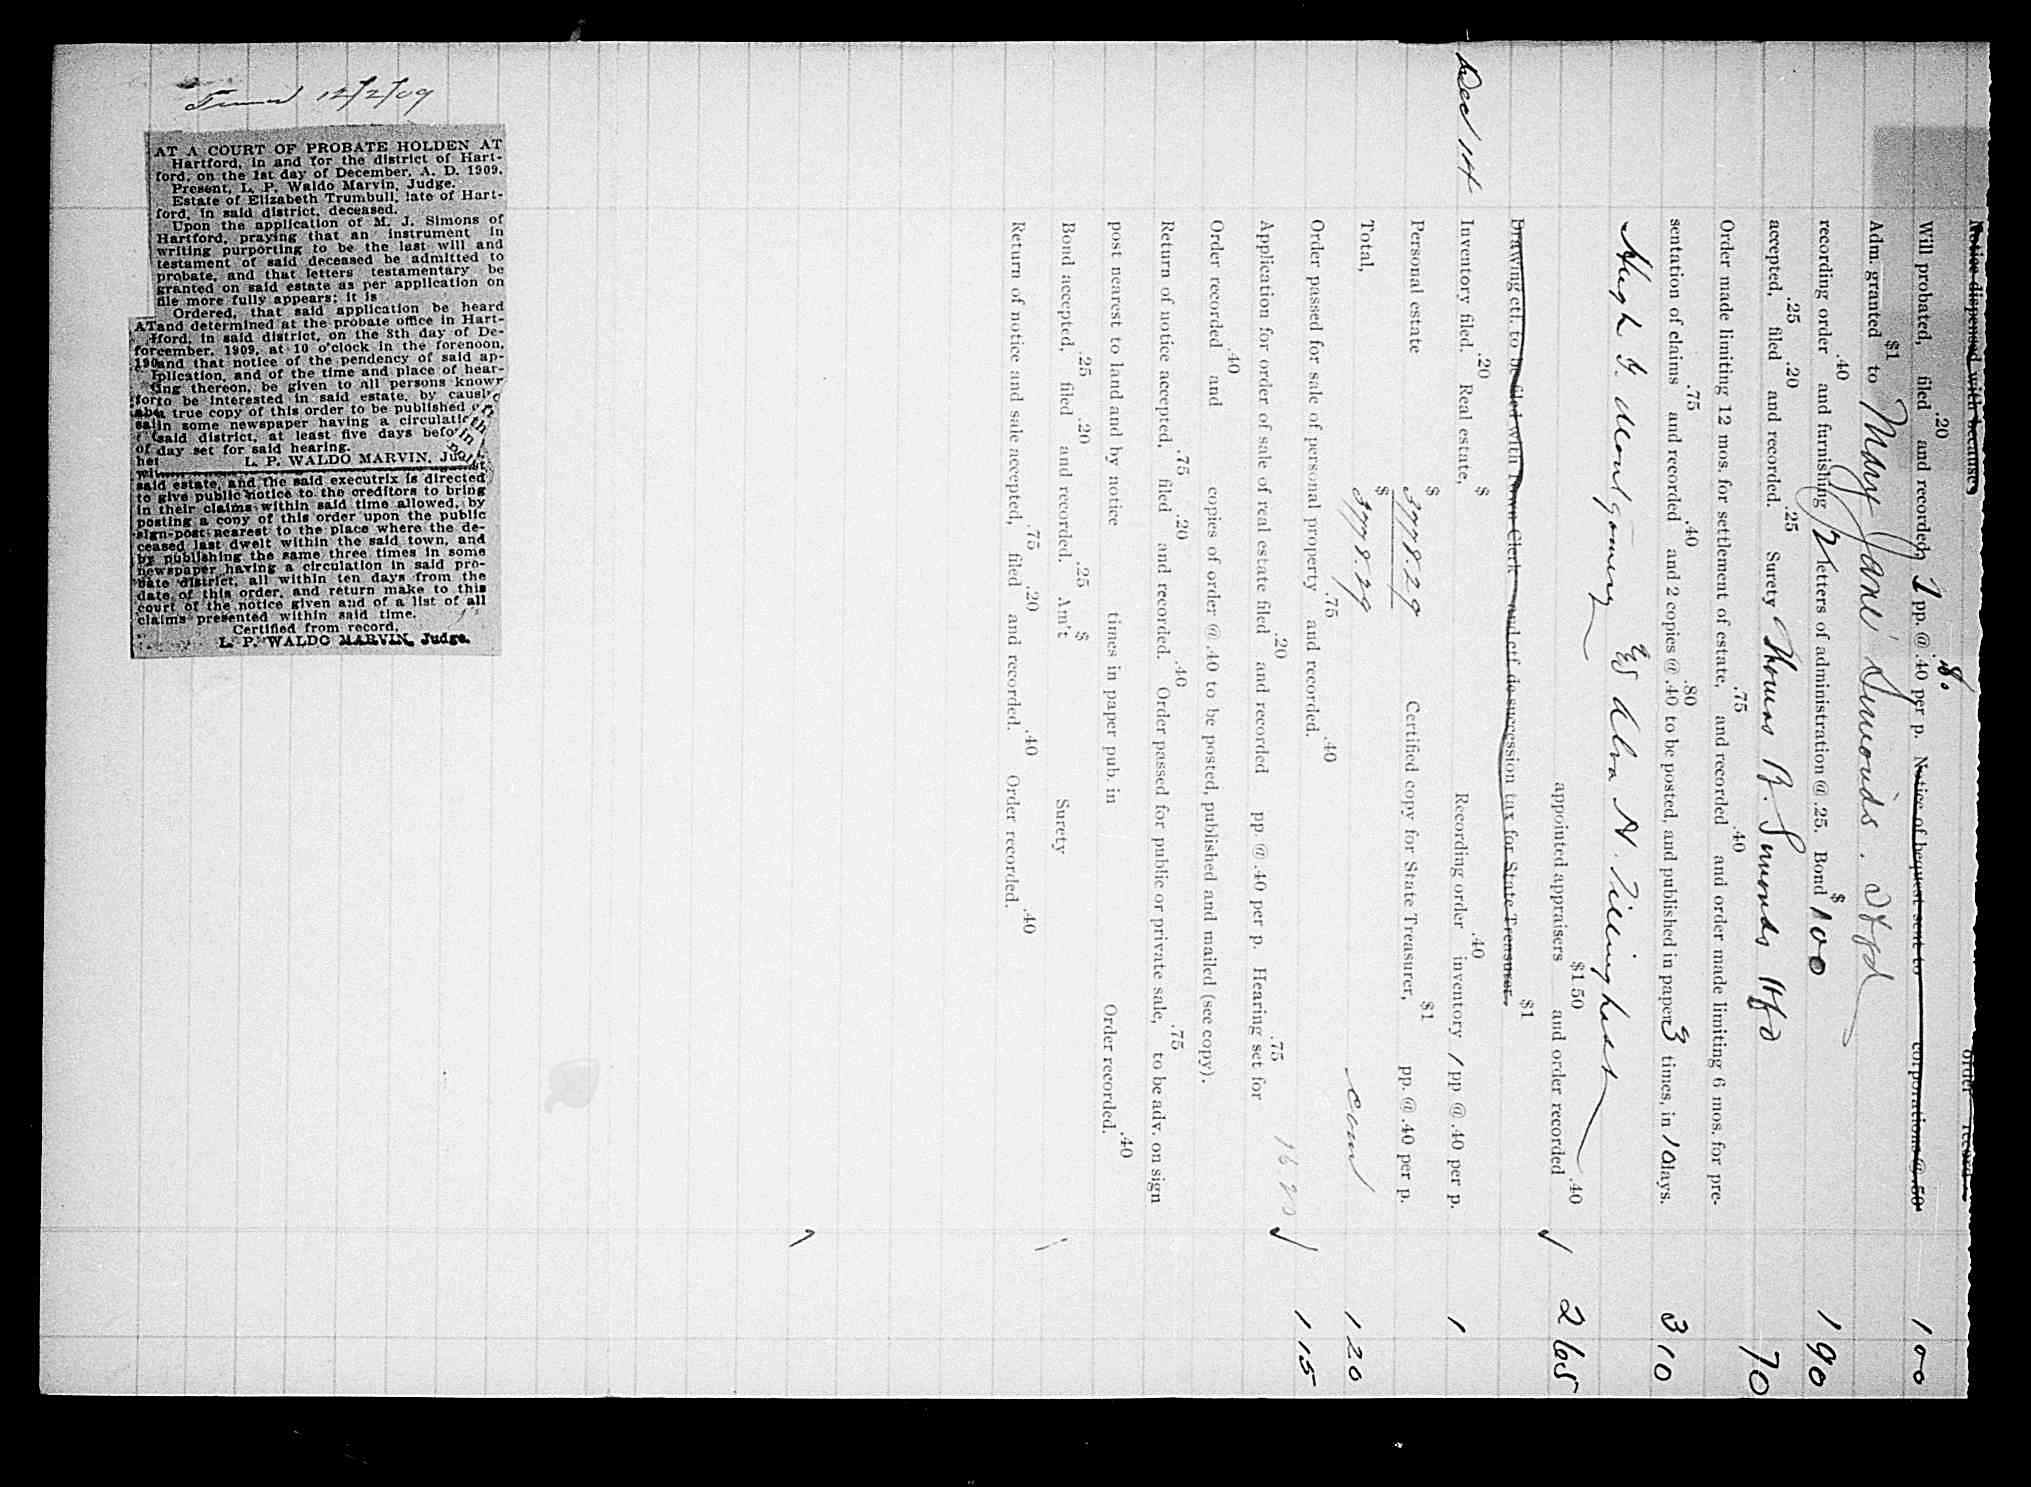 12/2/09
AT A COURT OF PROBATE HOLDEN AT
Hartford, in and for the district of Hart-
ford, on the 1st day of December, A. D. 1909.
Present, L. P. Waldo Marvin, Judge.
Estate of Elizabeth Trumbull, late of Hart-
ford, in said district, deceased.
Upon the application of M. J. Simons of
Hartford, praying that an instrument in
writing purporting to be the last will and
testament of said deceased be admitted to
probate, and that letters testamentary be
granted on said estate as per application on
file more fully appears; it is
Ordered, that said application be heard
and determined at the probate office in Hart-
ford, in said district, on the 8th day of De-
cember, 1909, at 10 o'clock in the forenoon,
and that notice of the pendency of said ap-
plication, and of the time and place of hear-
ing thereon, be given to all persons known
to be interested in said estate, by causing
a true copy of this order to be published
in some newspaper having a circulation
said district, at least five days before
day set for said hearing.
L. P. WALDO MARVIN, Judge
said estate, and the said executrix is directed
to give public notice to the creditors to bring
in their claims within said time allowed, by
posting a copy of this order upon the public
sign-post nearest to the place where the de-
ceased last dwelt within the said town, and
by publishing the same three times in some
newspaper having a circulation in said pro-
bate district, all within ten days from the
date of this order, and return make to this
court of the notice given and of a list of all
claims presented within said time.
Certified from record,
L. P. WALDO MARVIN, Judge.
Notice dispensed with because order record
Will probated, .20 filed and recorded, 1 pp. @ .40 per p. Notice of bequest sent to corporations @ .50 100
Adm. granted $1 to Mary Jane Simonds. Htfd
recording order .40 and furnishing 2 letters of administration @ .25. Bond $100 190
accepted, .25 filed .20 and recorded. .25 Surety Thomas B. Simonds Htfd 70
Order made limiting 12 mos. for settlement of estate, .75 and recorded .40 and order made limiting 6 mos. for pre-
sentation of claims .75 and recorded .40 and 2 copies @ .40 .80 to be posted, and published in paper 3 times, in 10 days. 310
Hugh G. Montgomery & Alva A. Tillinghast
appointed appraisers $1.50 and order recorded .40 265
Drawing ctf. to be filed with Town Clerk and ctf. de succession tax for State Treasurer. $1
Dec 14 Inventory filed. .20 Real estate, $ Recording order .40 inventory 1 pp @ .40 per p. 1
Personal estate $ 3778.29 Certified copy for State Treasurer, $1 pp. @ .40 per p.
Total, $ 3778.29 120
Order passed for sale of personal property .75 and recorded. .40 115
Application for order of sale of real estate filed .20 and recorded pp. @ .40 per p. Hearing set for .75
Order recorded .40 and copies of order @ .40 to be posted, published and mailed (see copy).
Return of notice accepted, .75 filed .20 and recorded. .40 Order passed for public or private sale, .75 to be adv. on sign
post nearest to land and by notice times in paper pub. in Order recorded. .40
Bond accepted, .25 filed .20 and recorded. .25 Am't $ Surety
Return of notice and sale accepted, .75 filed .20 and recorded. .40 Order recorded. .40